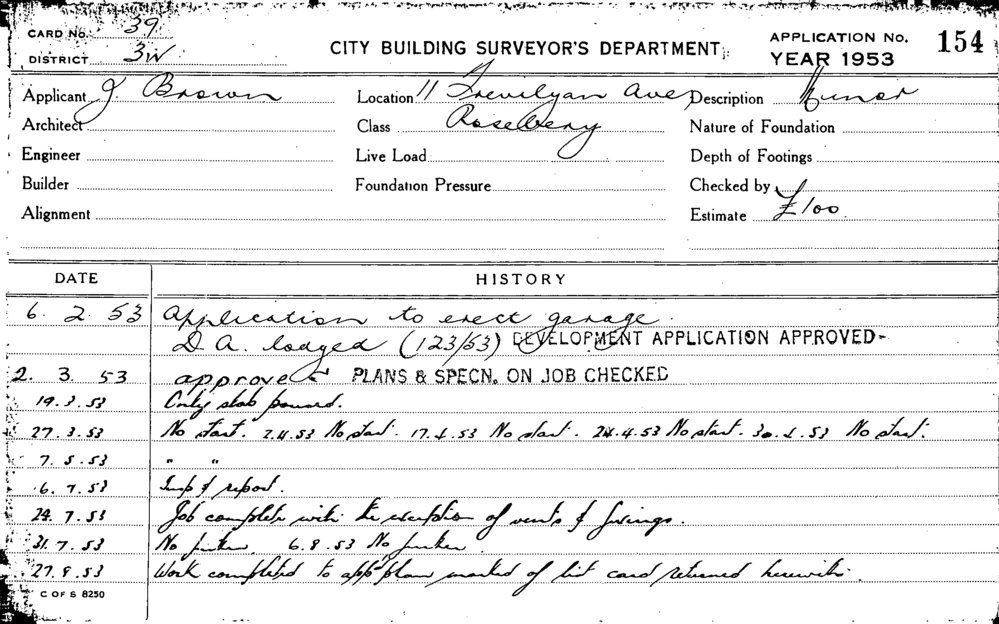 CARD No. 39
DISTRICT 3W
CITY BUILDING SURVEYOR'S DEPARTMENT
APPLICATION No. 154
YEAR 1953
Applicant J Brown
Location 11 Trevilyan Ave,
Description Minor
Architect
Class Rosebery
Nature of Foundation
Engineer
Live Load
Depth of Footings
Builder
Foundation Pressure
Checked by
Alignment
Estimate £100
DATE HISTORY
6. 2. 53 Application to erect garage.
D A. lodged (123/53) DEVELOPMENT APPLICATION APPROVED
2. 3. 53 approved PLANS & SPECN. ON JOB CHECKED
19.3.53 Only slab poured.
27.3.53 No start. 2.4.53 No start. 17.4.53 No start. 24.4.53 No start. 30.4.53 No start.
7.5.53 " "
6.7.53 Insp & report.
24.7.53 Job complete with the exception of vents & firings.
31.7.53 No further. 6.8.53 No further.
27.8.53 Work completed to app plan marked of list card returned herewith.
C OF S 8250